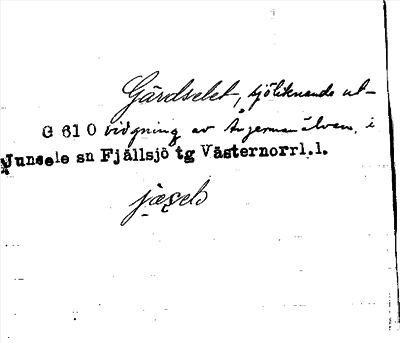 Gärdselet, sjöliknande ut-
G 61 O vidgning av Ångermanälven, i
Junsele sn Fjällsjö tg Västernorrl.l.